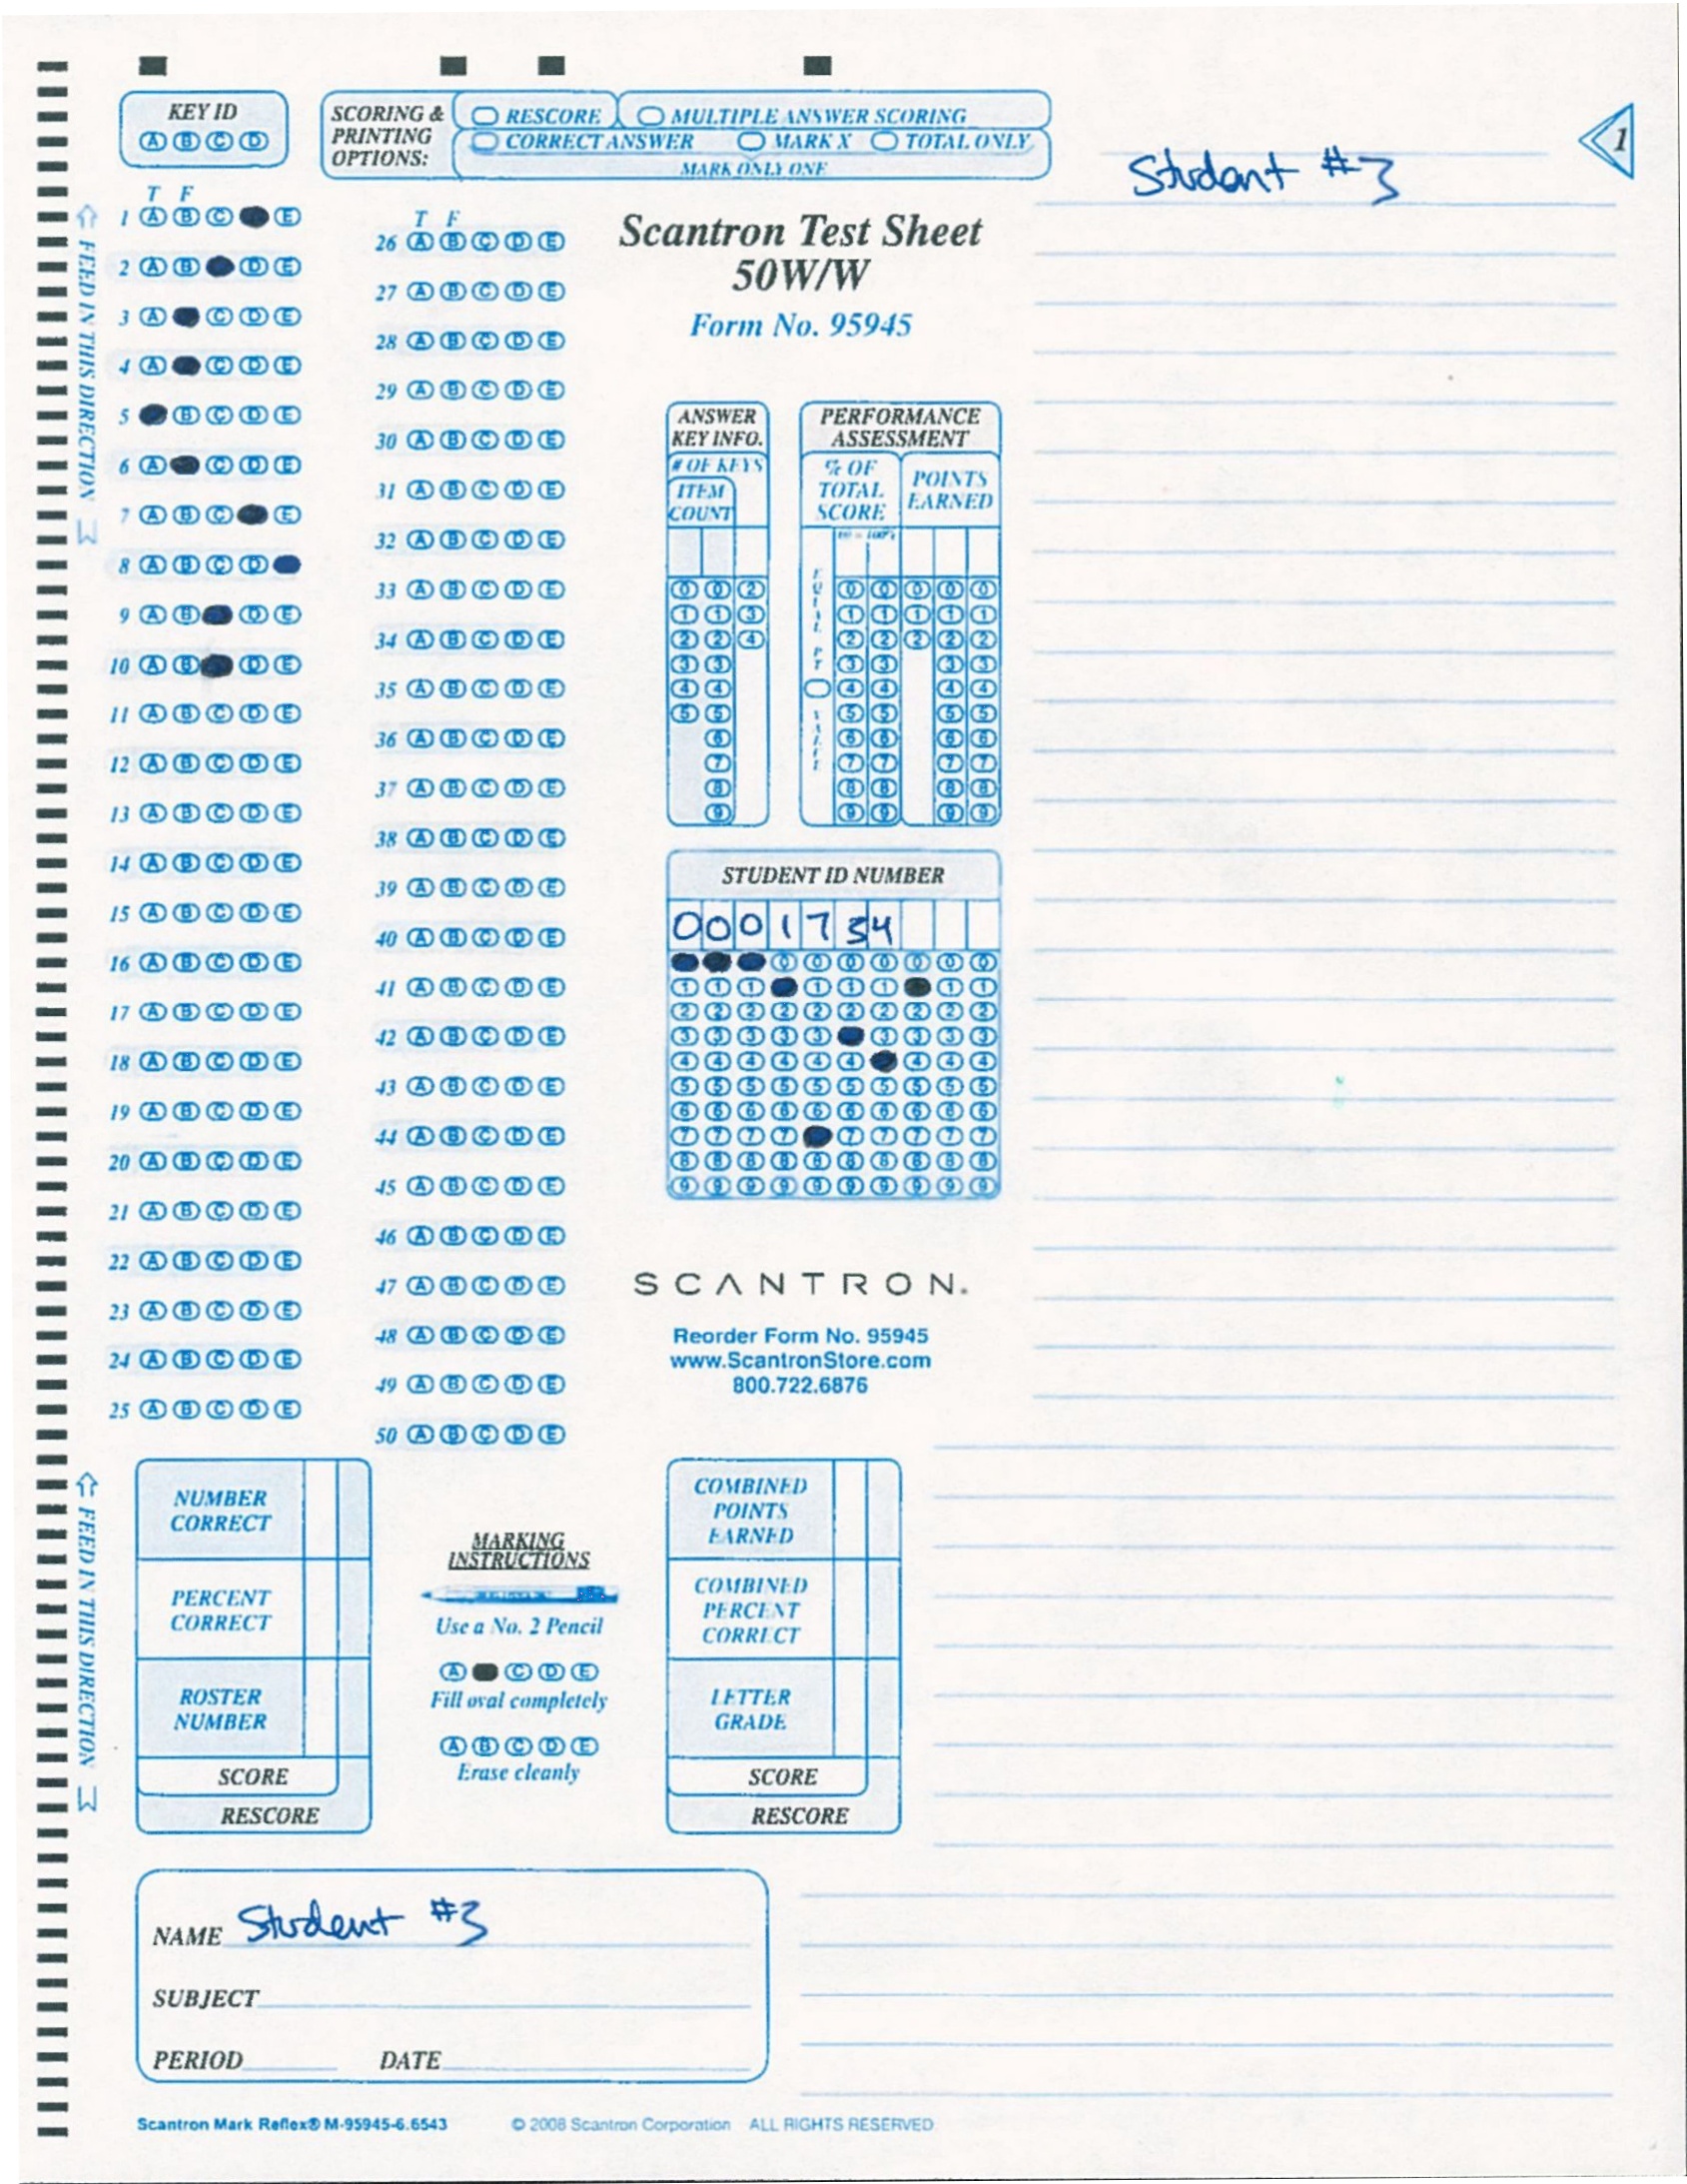 KEY ID
A B C D
SCORING & PRINTING OPTIONS:
RESCORE MULTIPLE ANSWER SCORING
CORRECT ANSWER MARK X TOTAL ONLY
MARK ONLY ONE
1
Student #3
FEED IN THIS DIRECTION
T F
1 A B C E
2 A B D E
3 A C D E
4 A C D E
5 B C D E
6 A C D E
7 A B C E
8 A B C D
9 A B D E
10 A B D E
11 A B C D E
12 A B C D E
13 A B C D E
14 A B C D E
15 A B C D E
16 A B C D E
17 A B C D E
18 A B C D E
19 A B C D E
20 A B C D E
21 A B C D E
22 A B C D E
23 A B C D E
24 A B C D E
25 A B C D E
T F
26 A B C D E
27 A B C D E
28 A B C D E
29 A B C D E
30 A B C D E
31 A B C D E
32 A B C D E
33 A B C D E
34 A B C D E
35 A B C D E
36 A B C D E
37 A B C D E
38 A B C D E
39 A B C D E
40 A B C D E
41 A B C D E
42 A B C D E
43 A B C D E
44 A B C D E
45 A B C D E
46 A B C D E
47 A B C D E
48 A B C D E
49 A B C D E
50 A B C D E
Scantron Test Sheet
50W/W
Form No. 95945
ANSWER
KEY INFO.
# OF KEYS
ITEM
COUNT
0 0 2
1 1 3
2 2 4
3 3
4 4
5 5
6
7
8
9
PERFORMANCE
ASSESSMENT
% OF
TOTAL
SCORE
POINTS
EARNED
EQUAL PT VALUE
0 0 0 0 0
1 1 1 1 1
2 2 2 2 2
3 3 3 3
4 4 4 4
5 5 5 5
6 6 6 6
7 7 7 7
8 8 8 8
9 9 9 9
STUDENT ID NUMBER
0001734
0 0 0 0 0 0 0
1 1 1 1 1 1 1 1
2 2 2 2 2 2 2 2 2 2
3 3 3 3 3 3 3 3 3
4 4 4 4 4 4 4 4 4
5 5 5 5 5 5 5 5 5 5
6 6 6 6 6 6 6 6 6 6
7 7 7 7 7 7 7 7 7
8 8 8 8 8 8 8 8 8 8
9 9 9 9 9 9 9 9 9 9
SCANTRON.
Reorder Form No. 95945
www.ScantronStore.com
800.722.6876
FEED IN THIS DIRECTION
NUMBER
CORRECT
PERCENT
CORRECT
ROSTER
NUMBER
SCORE
RESCORE
MARKING
INSTRUCTIONS
Use a No. 2 Pencil
A C D E
Fill oval completely
A B C D E
Erase cleanly
COMBINED
POINTS
EARNED
COMBINED
PERCENT
CORRECT
LETTER
GRADE
SCORE
RESCORE
NAME Student #3
SUBJECT
PERIOD DATE
Scantron Mark Reflex® M-95945-6.6543 © 2008 Scantron Corporation ALL RIGHTS RESERVED